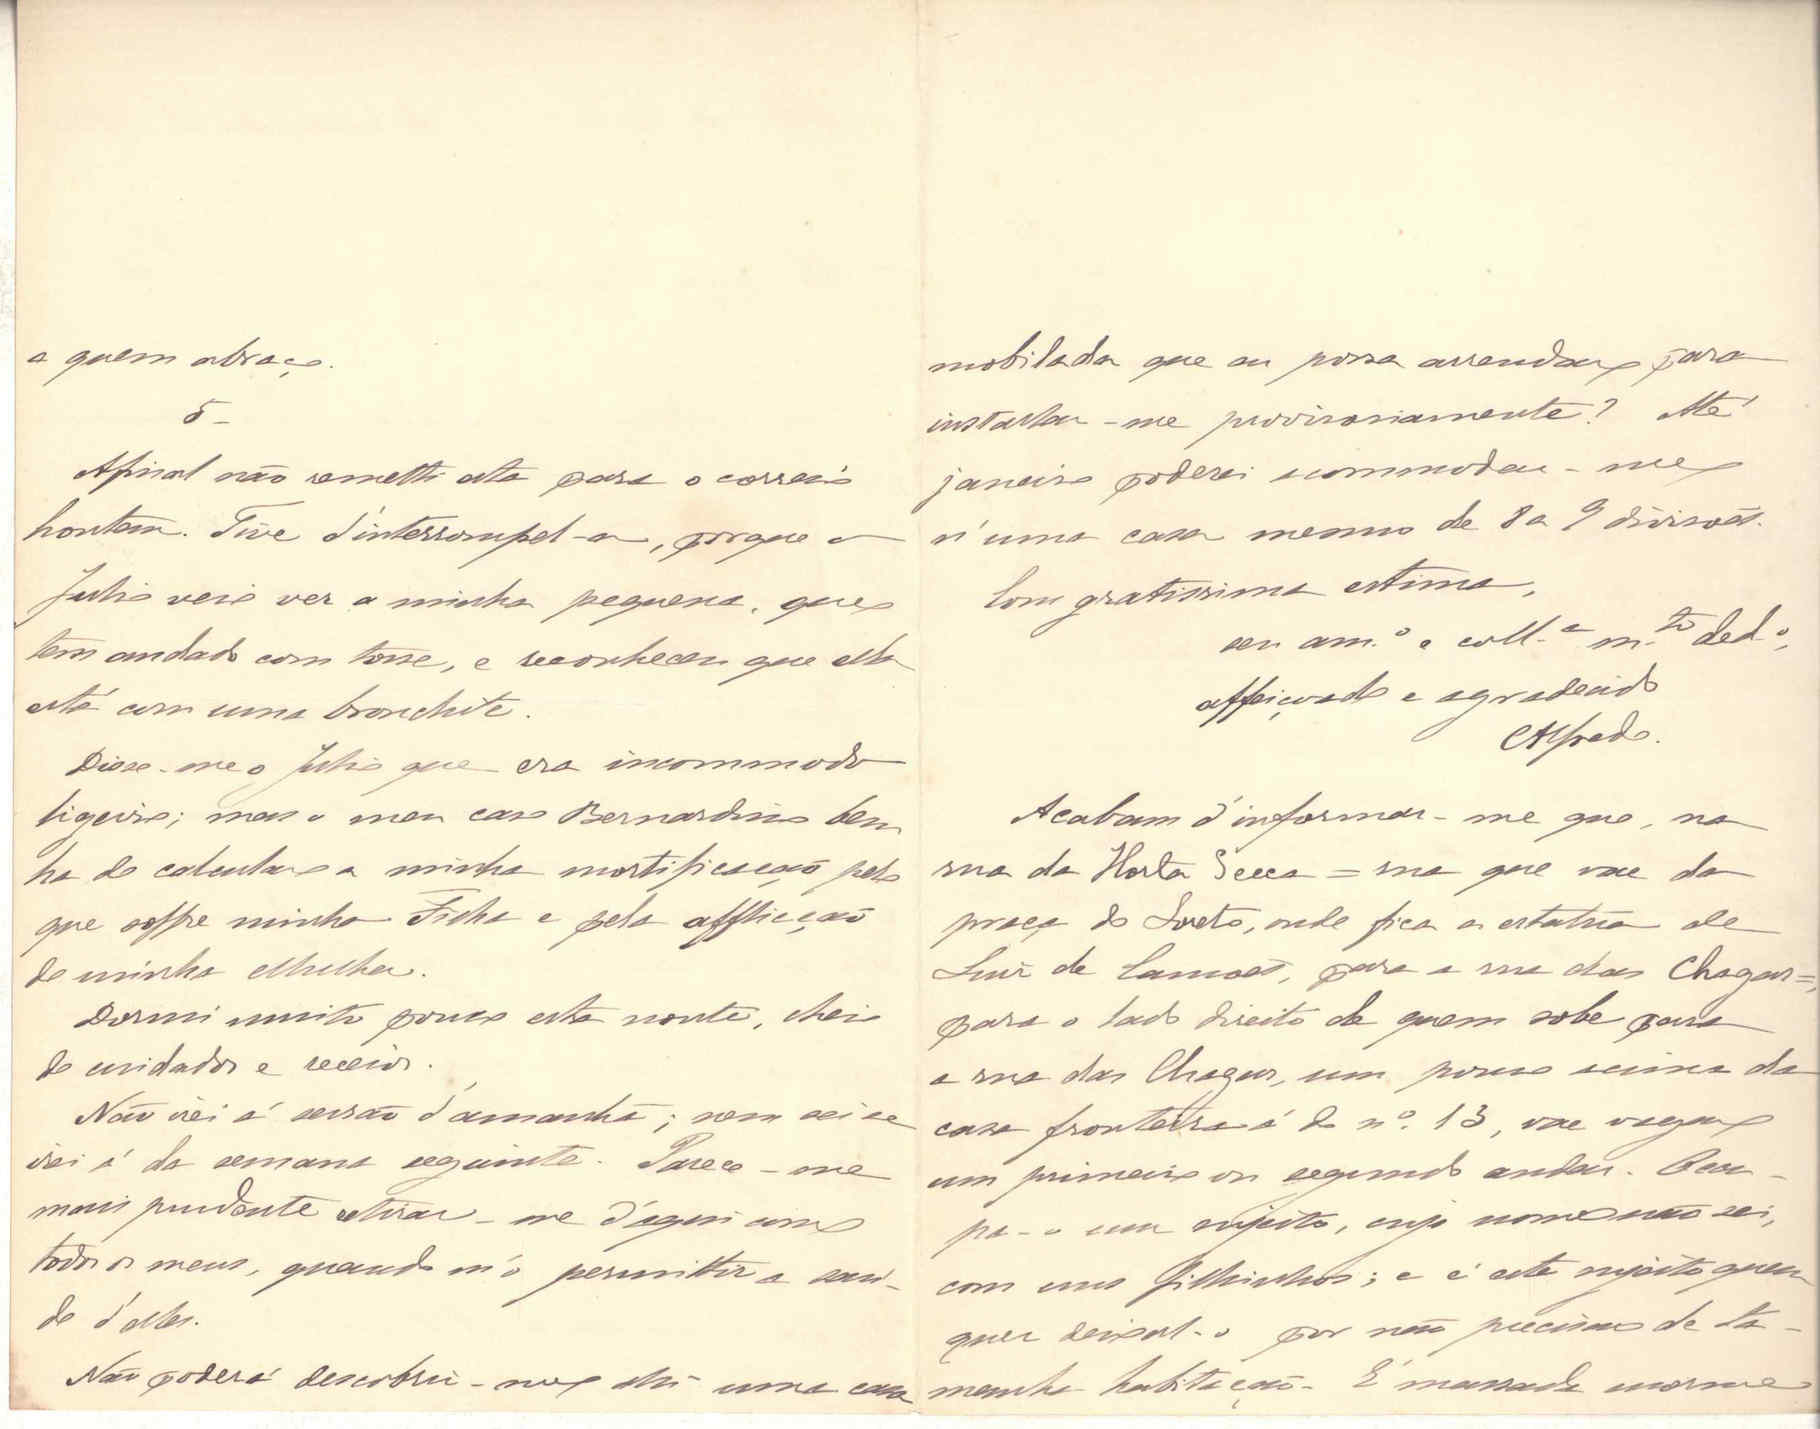 a quem abraço.
5-
Afinal não remetti esta para o correio
hontem. Tive d'interrompel-a, porque o
Julio veio ver a minha pequena, que
tem andado com tosse, e reconheceu que ella
está com uma bronchite.
Disse-me o Julio que era incommodo
ligeiro; mas o meu caro Bernardino bem
ha de calcular a minha mortificação pelo
que soffre minha Filha e pela afflicção
de minha Mulher.
Dormi muito pouco esta noute, cheio
de cuidados e receios.
Não irei á sessão d'amanhã; nem sei se
irei á da semana seguinte. Parece-me
mais prudente retirar-me d'aqui com
todos os meus, quando m'o permittir a sau-
de d'elles.
Não poderá descobrir-me ahi uma casa
mobilada que eu possa arrendar para
installar-me provisoriamente? Até
janeiro poderei accommodar-me
n'uma casa mesmo de 8 a 9 divisões.
Com gratissima estima,
seu am.º e coll.ª m.to ded.º,
affeiçoado e agradecido
Alfredo.
Acabam d'informar-me que, na
rua da Horta Secca = rua que vae da
praça do Loreto, onde fica a estatua de
Luiz de Camões, para a rua das Chagas =,
para o lado direito de quem sobe para
a rua das Chagas, um pouco acima da
casa fronteira á do n.º 13, vae vagar
um primeiro ou segundo andar. Occu-
pa-o um sujeito, cujo nome não sei,
com uns filhinhos; e é este sujeito quem
quer deixal-o por não precisar de ta-
manha habitação. É massada enorme